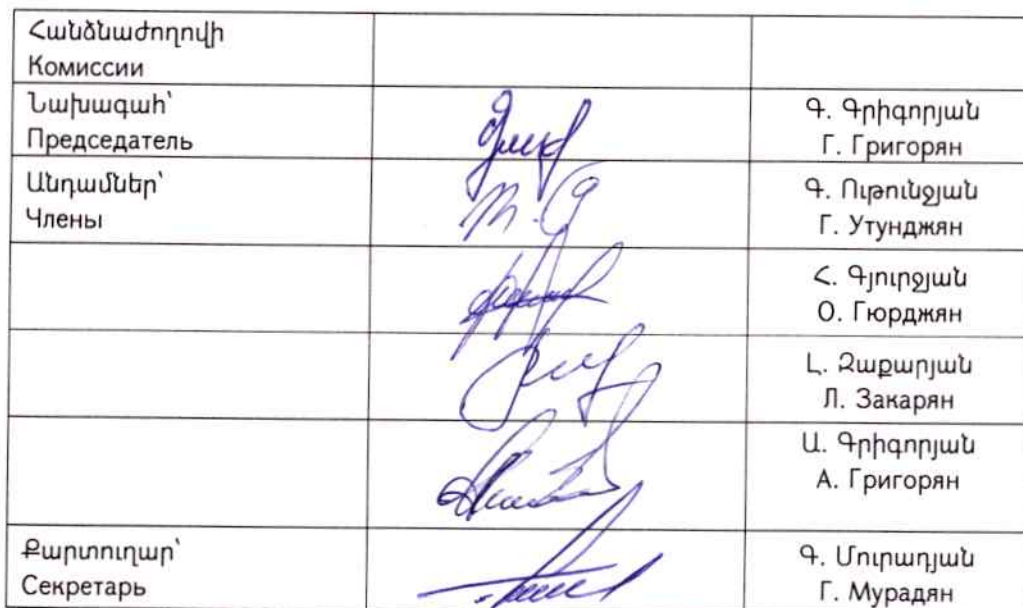 Հանձնաժողովի
Комиссии
Նախագահ՝
Председатель
Գ. Գրիգորյան
Г. Григорян
Անդամներ՝
Члены
Գ. Ութունջյան
Г. Утунджян
Հ. Գյուրջյան
О. Гюрджян
Լ. Զաքարյան
Л. Закарян
Ա. Գրիգորյան
А. Григорян
Քարտուղար՝
Секретарь
Գ. Մուրադյան
Г. Мурадян